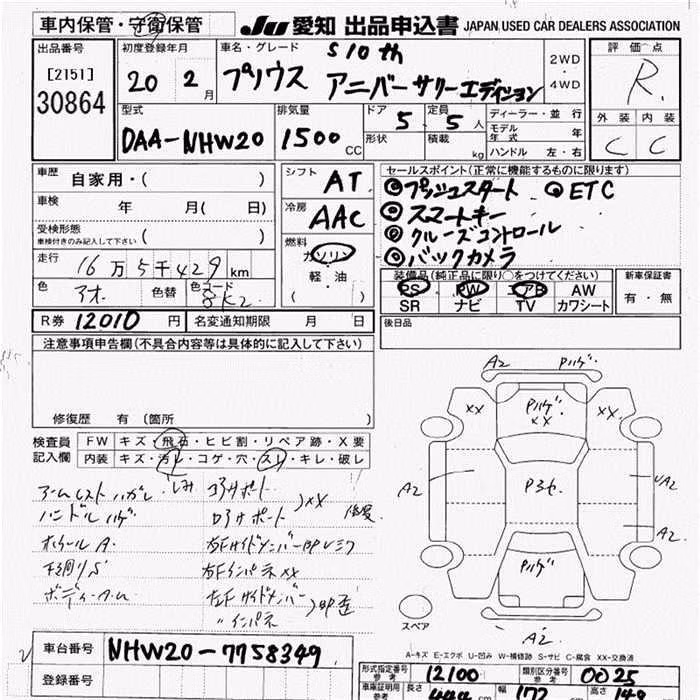 車内保管・守衛保管
JU 愛知 出品申込書 JAPAN USED CAR DEALERS ASSOCIATION
出品番号
[2151]
30864
初度登録年月
20 2月
車名・グレード
S10th
プリウス アニバーサリーエディション
2WD
・
4WD
評価点
R
外装 内装
C C
型式
DAA-NHW20
排気量
1500 CC
ドア 5
形状
定員 5人
積載 kg
ディーラー・並行
モデル年式 年
ハンドル 左・右
車歴 自家用・( )
車検 年 月( 日)
受検形態
車検付きのみ記入して下さい ( )
走行 16万5千429km
色 アオ 色替 色コード 8K2
シフト AT
冷房 AAC
燃料
ガソリン
軽・油
( )
セールスポイント(正常に機能するものに限ります)
◎プッシュスタート ◎ETC
◎スマートキー
◎クルーズコントロール
◎バックカメラ
装備品(純正品に限り○をつけてください)
PS PW エアB AW
SR ナビ TV カワシート
新車保証書
有・無
R券 12010円 名変通知期限 月 日
後日品
注意事項申告欄(不具合内容等は具体的に記入して下さい)
修復歴 有(箇所
検査員
記入欄
FW キズ・飛石・ヒビ割・リペア跡・X要
内装 キズ・汚れ・コゲ・穴・スレ・キレ・破レ
アームレストハガレ シミ コアサポート
ハンドルハゲ ロアサポート XX 修復
ホイールA 右FサイドメンバーBP
下廻りS 右FインパネXX
左Fサイドメンバー BP歪
〃インパネ
A2 Pハゲ
XX Pハゲ XX XX
A2 A2
A2
Pハゲ
A2
スペア
A-キズ E-エクボ U-凹み W-補修跡 S-サビ C-腐食 XX-交換済
車台番号 NHW20-7758349
登録番号
形式指定番号
参考
12100
類別区分番号
参考
0025
車庫証明用
参考
長さ 444 cm 幅 172 cm 高さ 149